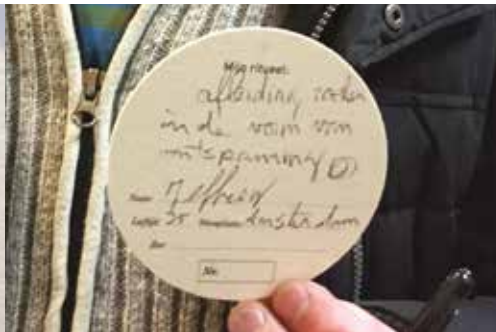 Mijn ritueel:
afleiding zoeken
in de vorm van
ontspanning
Naam: Jeffrey
Leeftijd: 25 Woonplaats: Amsterdam
Nr.